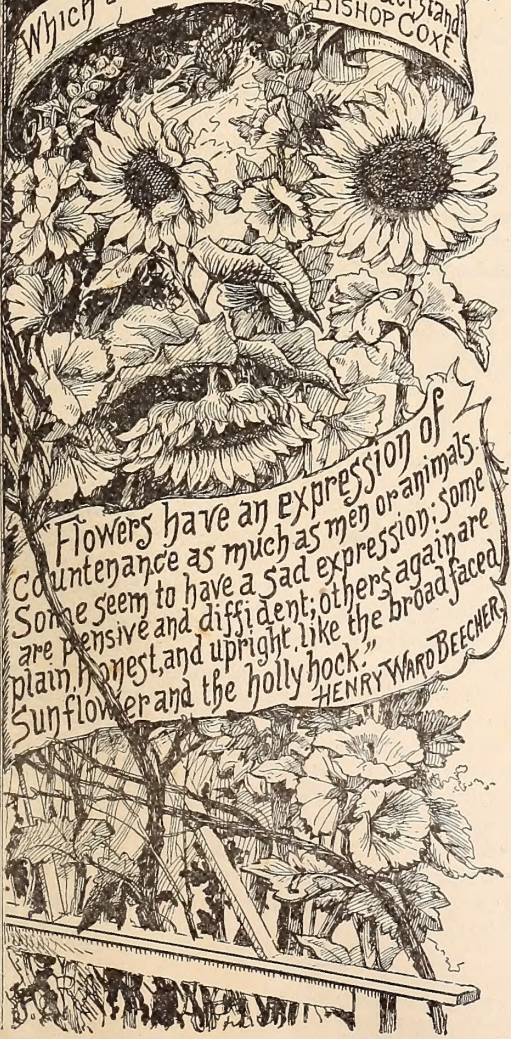 Which
BISHOP COXE.
"Flowers have an expression of
countenance as much as men or animals.
Some seem to have a sad expression; some
are pensive and diffident; others again are
plain, honest, and upright, like the broad faced
Sunflower and the hollyhock."
HENRY WARD BEECHER.